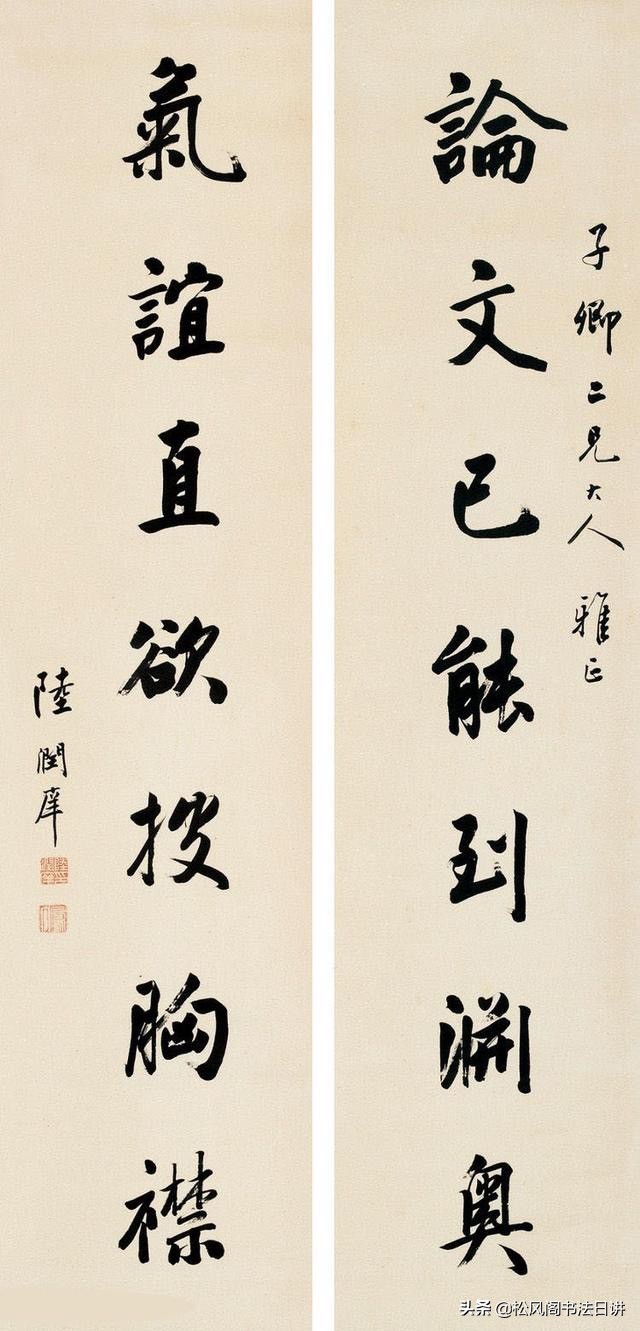 子卿二兄大人 雅正
論文已能到淵奧
氣誼直欲披胸襟
陸潤庠
头条 @松风阁书法日讲